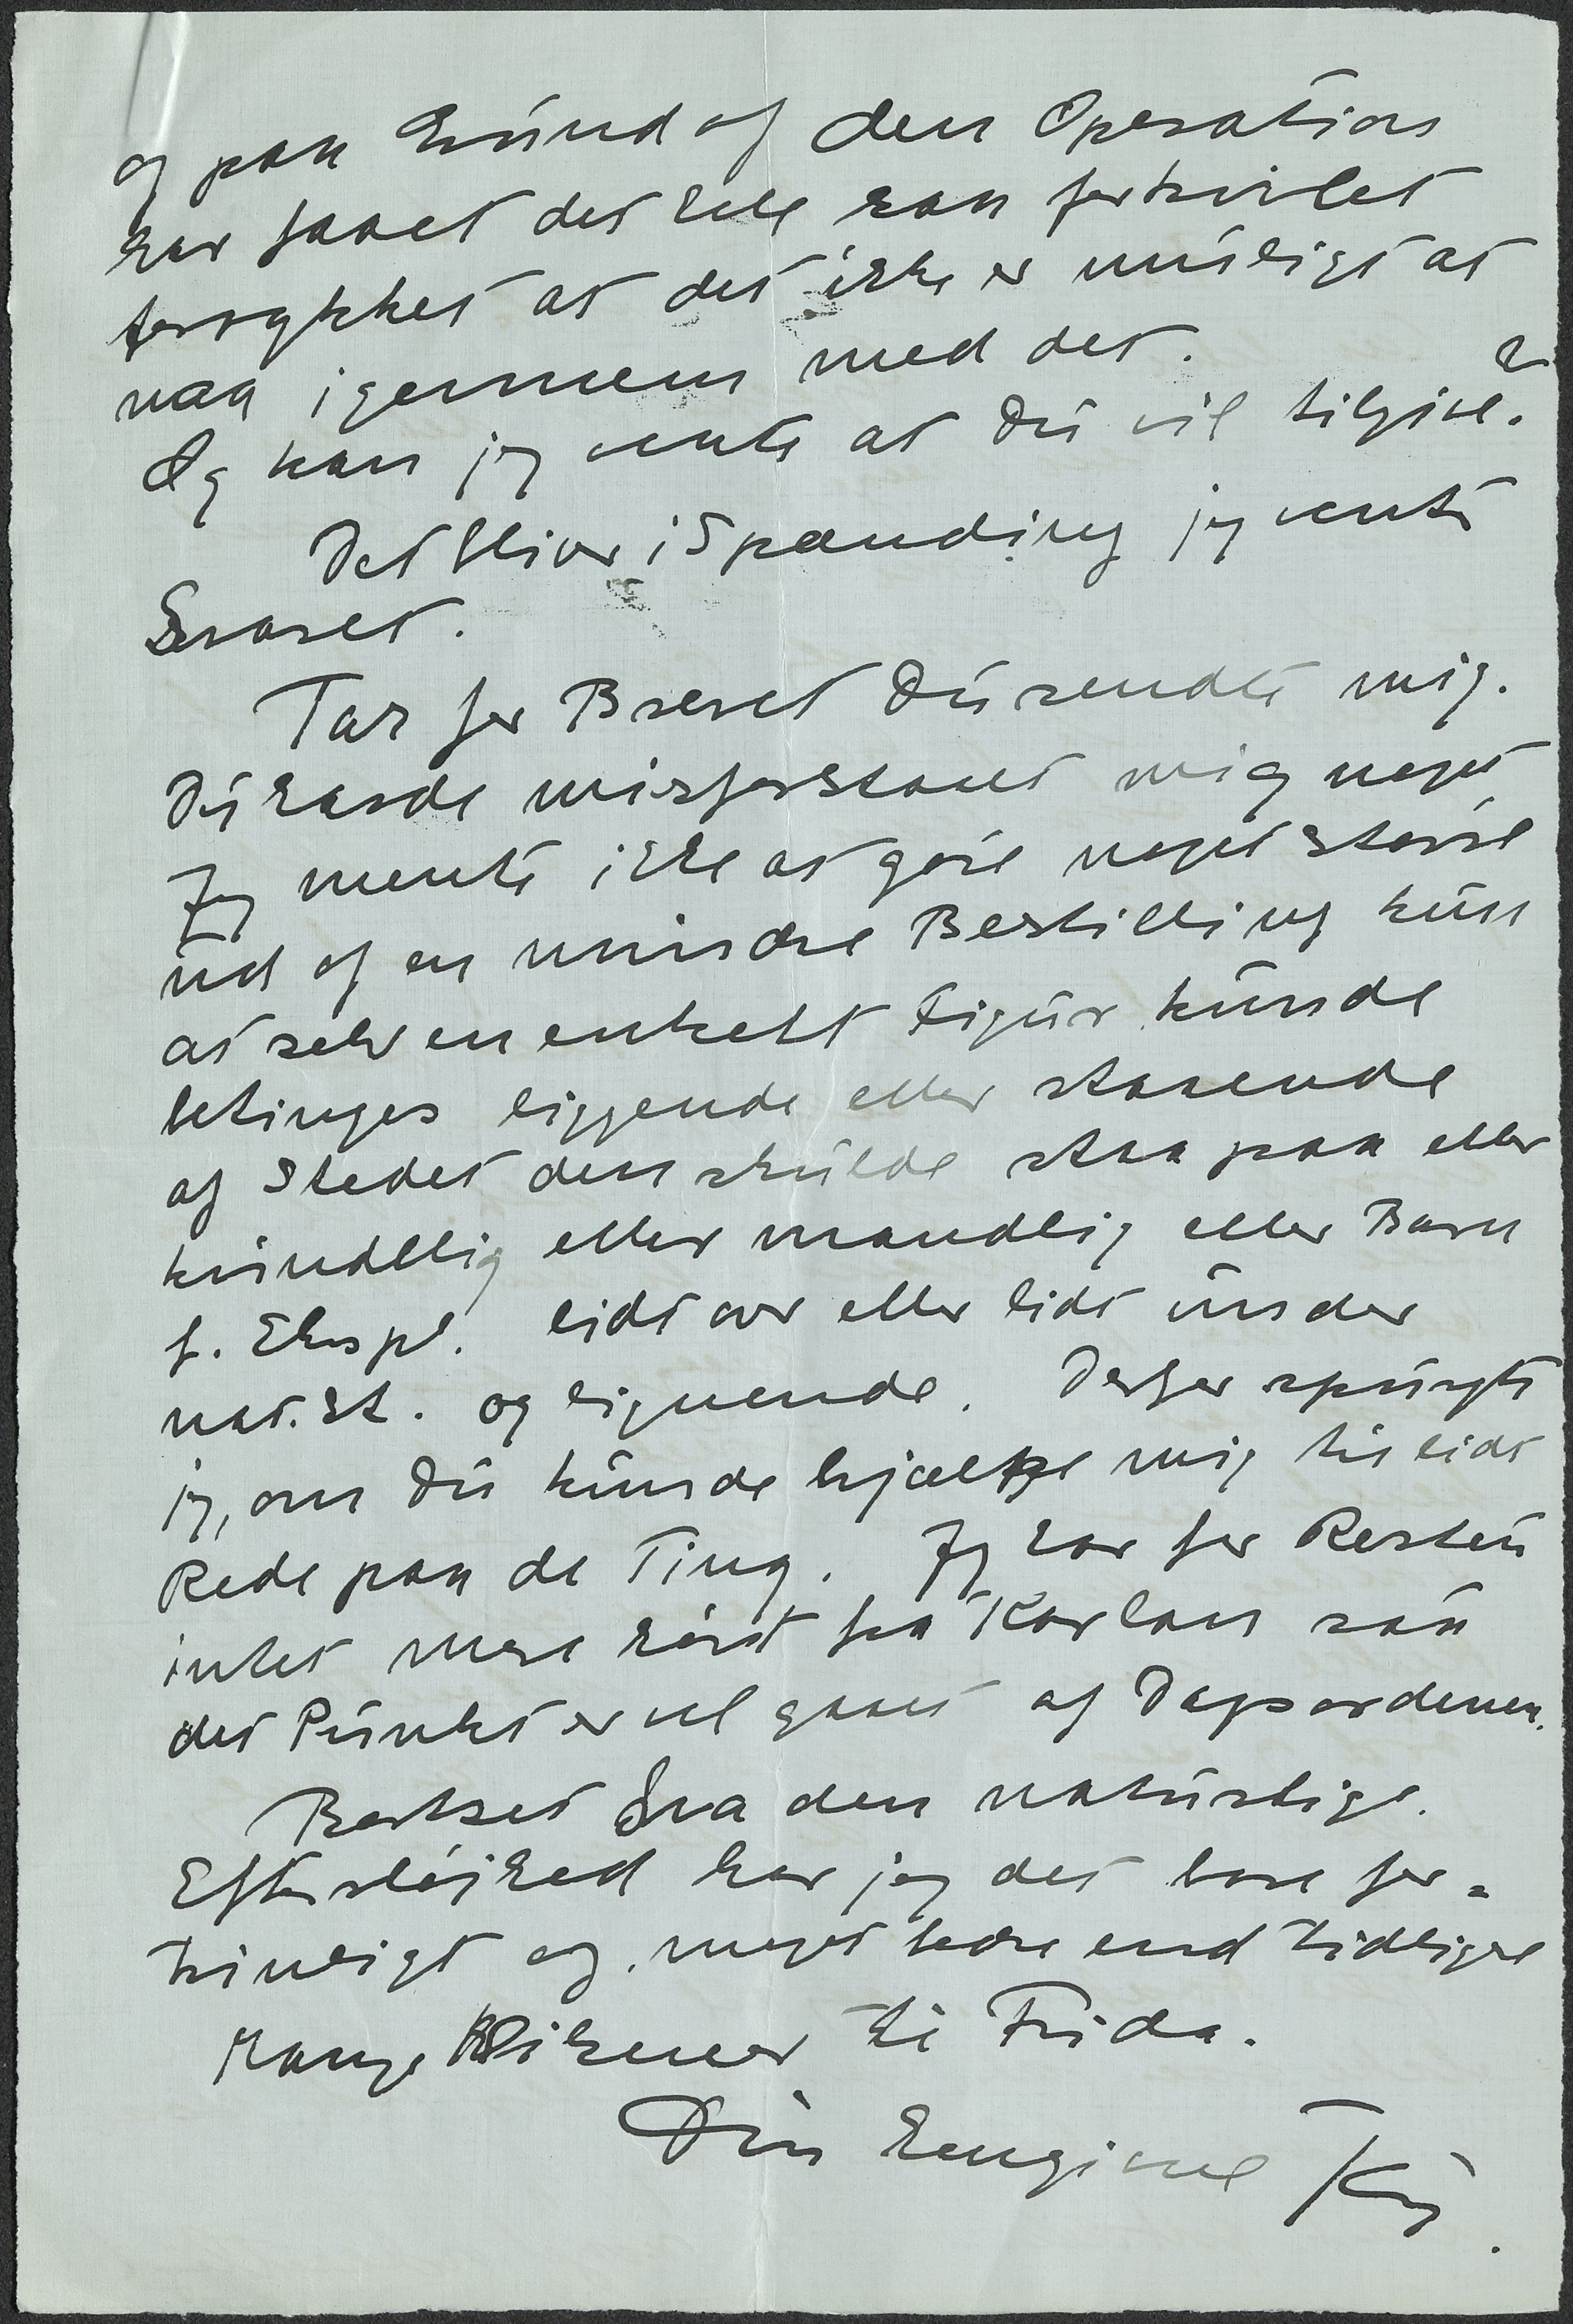 og paa Grund af den Operation
har faaet det hele saa forkvilet
forrykket at det ikke er muligt at
naa igennem med det.
Og kan jeg vente at Du vil tilgive?
Det bliver i Spænding jeg venter
Svaret.
Tak for Brevet Du sendte mig.
Du havde misforstaaet mig noget
Jeg mente ikke at göre noget större
ud af en mindre Bestilling kun
at selv en enkelt Figur kunde
betinges liggende eller staaende
af Stedet den skulde staa paa eller
kvindelig eller mandlig eller Barn
f. Ekspl. lidt over eller lidt under
nat. St. og lignende. Derfor spurgte
jeg, om Du kunde hjælpe mig til lidt
Rede paa de Ting. Jeg har for Resten
intet mere hört fra Karlson saa
det Punkt er vel gaaet af Dagsordenen.
Bortset fra den naturlige
Eftersløjhed har jeg det bare for=
trinligt og meget bedre end tidligere
Mange Hilsener til Frida.
Din hengivne Kaj.